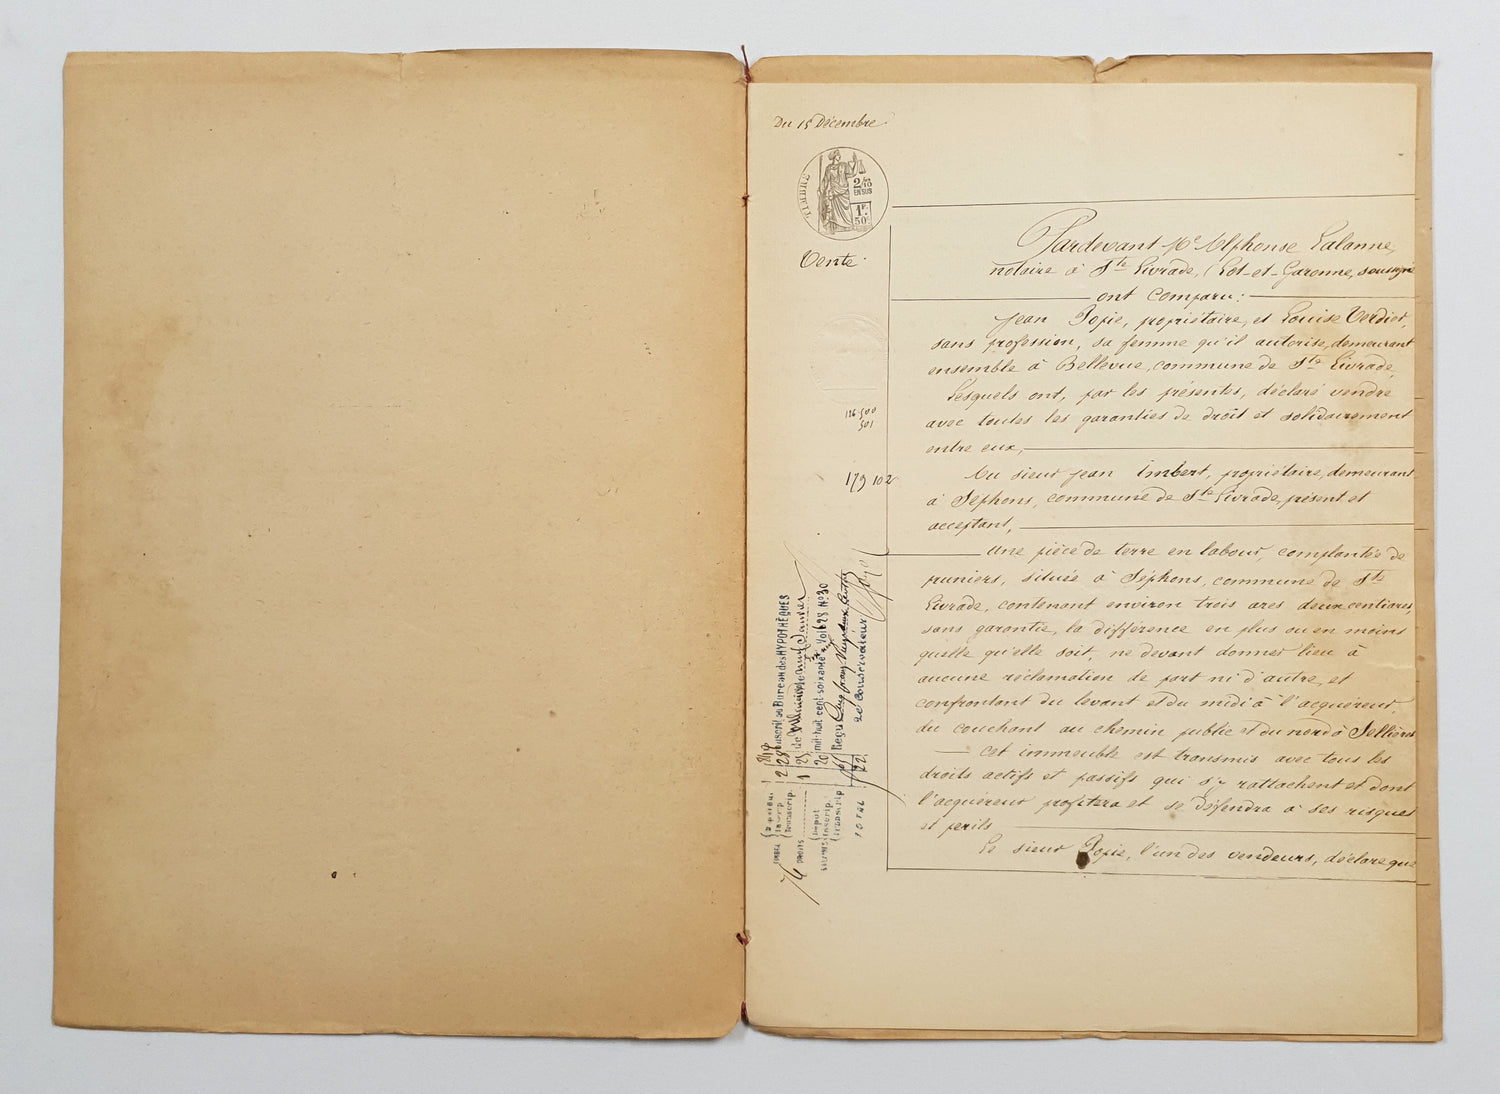 Du 15 Décembre
TIMBRE
2/10
EN SUS
1F.
50C
Vente
Pardevant Me Alphonse Lalanne,
notaire à Ste Livrade, (Lot-et-Garonne, soussigné
ont comparu:
Jean Popie, propriétaire, et Louise Verdier,
sans profession, sa femme qu'il autorise, demeurant
ensemble à Bellevue, commune de Ste Livrade,
Lesquels ont, par les présentes, déclaré vendre
avec toutes les garanties de droit et solidairement
entre eux,
Au sieur Jean Imbert, propriétaire, demeurant
à Séphons, commune de Ste Livrade, présent et
acceptant,
Une pièce de terre en labour, complantée de
pruniers, située à Séphons, commune de Ste
Livrade, contenant environ trois ares deux centiares,
sans garantie, la différence en plus ou en moins
quelle qu'elle soit, ne devant donner lieu à
aucune réclamation de part ni d'autre, et
confrontant du levant et du midi à l'acquéreur,
du couchant au chemin public et du nord à Sellières
Cet immeuble est transmis avec tous les
droits actifs et passifs qui s'y rattachent et dont
l'acquéreur profitera et se défendra à ses risques
et perils
Le sieur Popie, l'un des vendeurs, déclare que
126.500
501
179 102
au Bureau des HYPOTHÈQUES
Janvier
mil-huit cent soixante Vol 628 No 30
Reçu
Le Conservateur
TOTAL